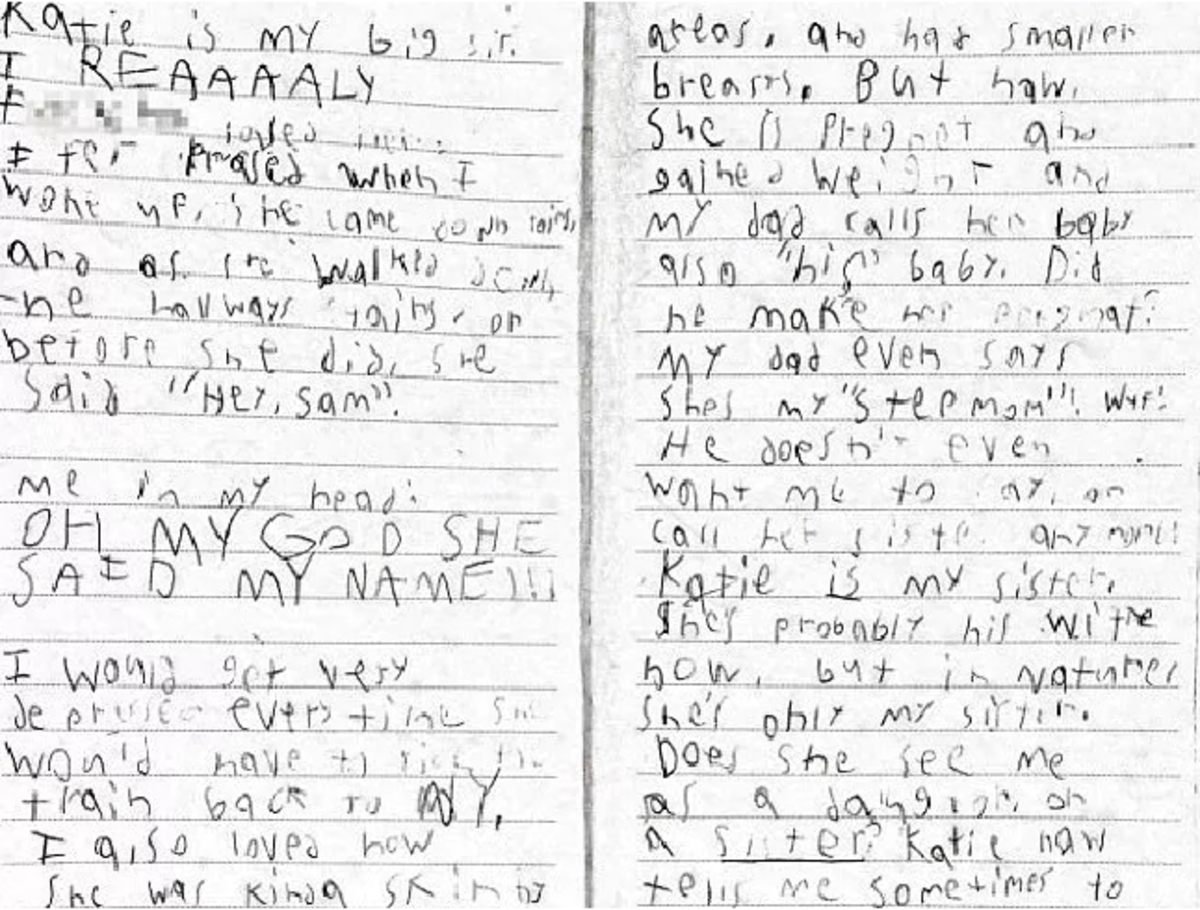 Katie is my big sis.
I REAAAALY
I
loved
I felt
when I
woke up, she came down
and as she walked down
hallways stairs, or
before she did, she
said "Hey, Sam".
me in my head:
OH MY GOD SHE
SAID MY NAME!!!
I would get very
every time she
would have to
train back to NY.
I also loved how
she was kinda skinny
areas, and had smaller
breasts. But now,
she is pregnet and
gained weight and
my dad calls her baby
also "his" baby. Did
he make her
My dad even says
shes my "step mom"!
He doesn't even
want me to say, or
call her sister anymore!
Katie is my sister.
She's probably his wife
now, but in
she's only my sister.
Does she see me
as a or
a sister? Katie now
tells me sometimes to